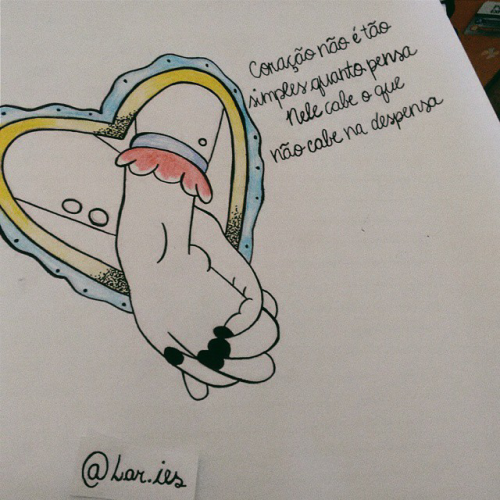 Coração não é tão
simples quanto pensa
Nele cabe o que
não cabe na despensa
@Lar.ies